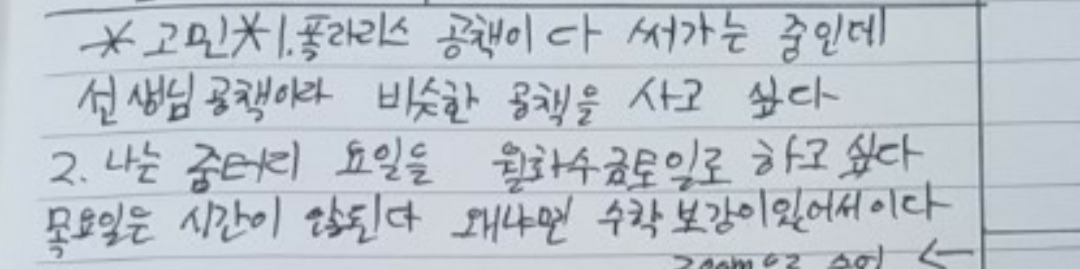 *고민* 1. 폴라리스 공책이 다 써가는 중인데
선생님 공책이라 비슷한 공책을 사고 싶다
2. 나는 줌터디 요일을 월화수금토일로 하고 싶다
목요일은 시간이 않된다 왜냐면 수학 보강이있어서이다
zoom으로 수업 ←